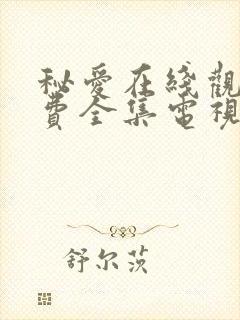 秘爱在线觀
費全集電視
舒尔茨